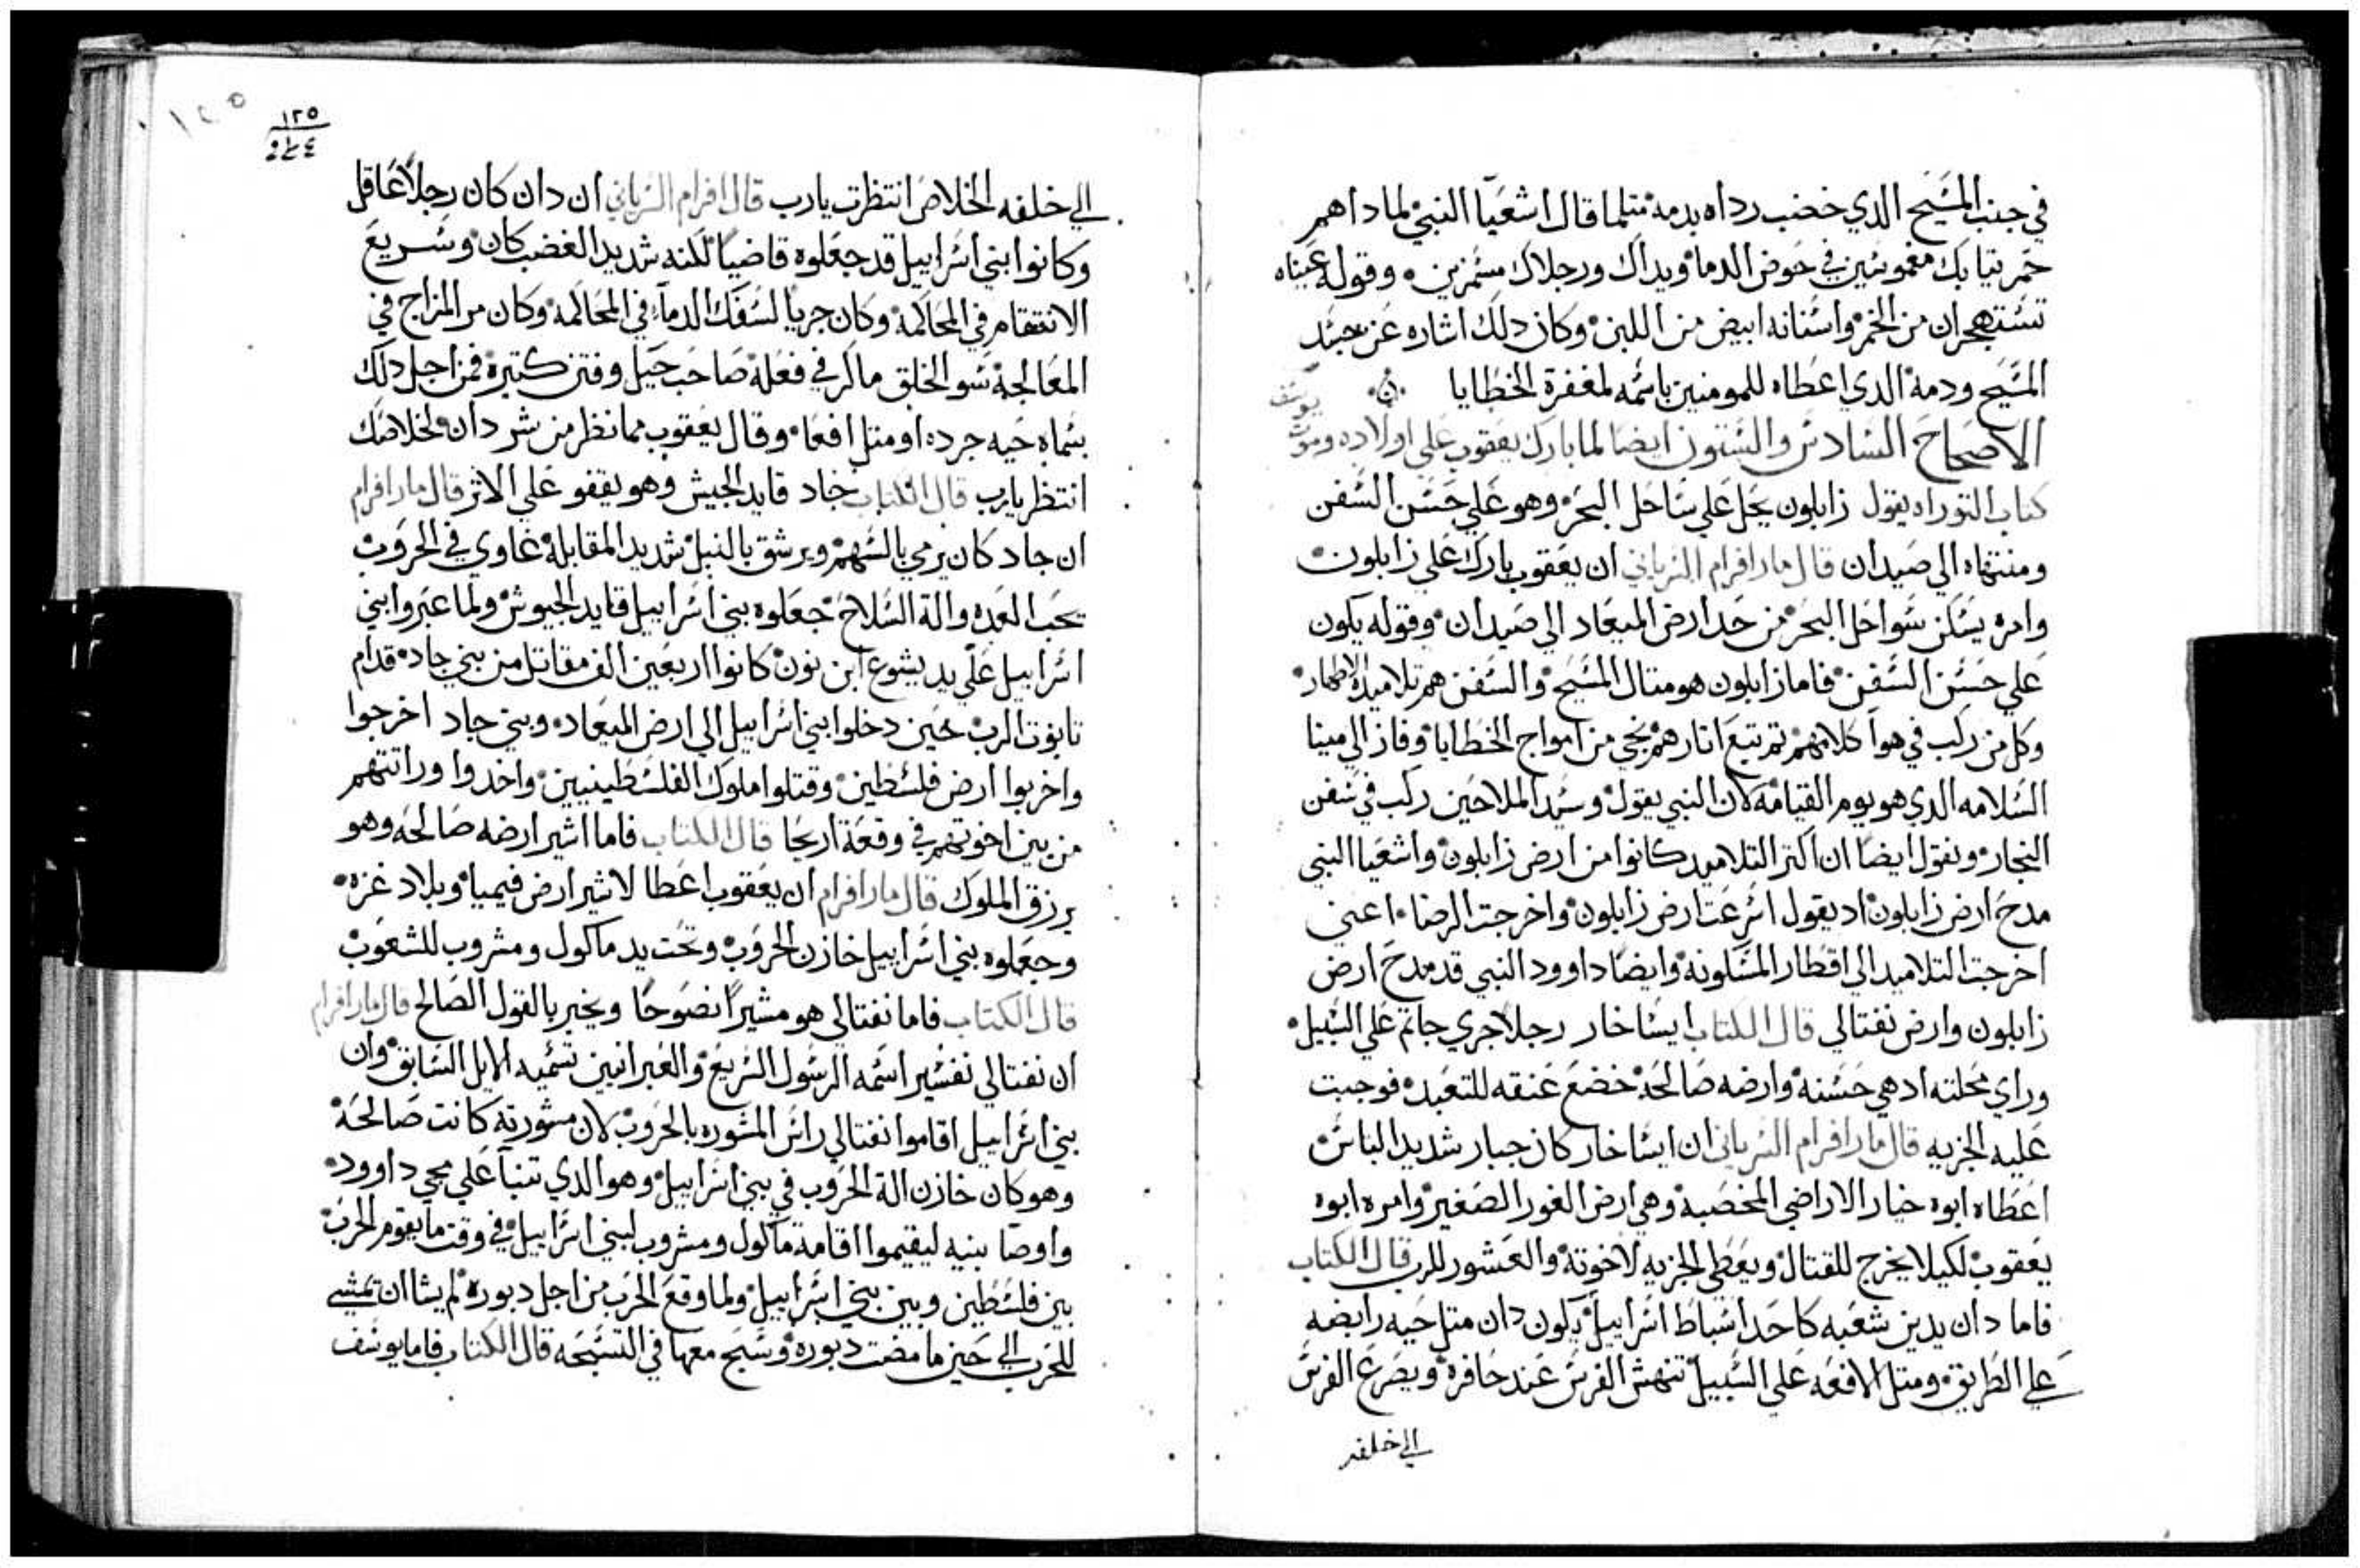 في جنب المسيح الدي خضب رداه بدمه متلما قال اشعيا النبي لمادا هم
حمر تيابك مغموسين في حوض الدما ويداك ورجلاك مشمزين وقوله عيناه
تستهجران من الخمر واسنانه ابيض من اللبن وكان دلك اشاره عن جسد
المسيح ودمه الدي اعطاه للمومنين باسمه لمغفرة الخطايا
الاصحاح السادس والستون ايضا لما بارك يعقوب علي اولاده وموت
يوسف
كتاب التوراه يقول زابلون يحل علي ساحل البحر وهو علي حسن السفن
ومنتهاه الي صيدان قال مار افرام السرياني ان يعقوب بارك علي زابلون
وامره يسكن سواحل البحر من حد ارض الميعاد الي صيدان وقوله يكون
علي حسن السفن فاما زابلون هو متال المسيح والسفن هم تلاميده الاطهار
وكل من ركب في هوا كلامهم تم تبع اتارهم نجي من امواج الخطايا وفاز الي مينا
السلامه الدي هو يوم القيامه لان النبي يقول وسيد الملاحين ركب في سفن
النجار ونقول ايضا ان اكتر التلاميد كانوا من ارض زابلون واشعيا النبي
مدح ارض زابلون اد يقول اسرعت ارض زابلون واخرجت الرضا اعني
اخرجت التلاميد الي اقطار المسكونه وايضا داوود النبي قد مدح ارض
زابلون وارض نفتالي قال الكتاب ايساخار رجلا جري جاتم علي السبيل
وراي محلته اد هي حسنه وارضه صالحه خضع عنقه للتعبد فوجبت
عليه الجزيه قال مار افرام السرياني ان ايساخار كان جبار شديد الباس
اعطاه ابوه خيار الاراضي المخصبه وهي ارض الغور الصغير وامره ابوه
يعقوب لكيلا يخرج للقتال ويعطي الجزيه لاخوته والعشور للرب قال الكتاب
فاما دان يدين شعبه كاحد اسباط اسراييل يكون دان متل حيه رابضه
علي الطريق ومتل الافعه علي السبيل تنهش الفرس عند حافره ويصرع الفرس
الي خلفه
١٢٥
الي خلفه لخلاصك انتظرت يارب قال افرام السرياني ان دان كان رجلا عاقل
وكانوا بني اسراييل قد جعلوه قاضيا لكنه شديد الغضب كان وسريع
الانتقام في المحاكمه وكان جريا لسفك الدما في المحاكمه وكان مر المزاج في
المعالجه سو الخلق ماكر في فعله صاحب حيل وفتن كتيره فمن اجل دلك
سماه حيه جرده او متل افعا وقال يعقوب مما نظر من شر دان لخلاصك
انتظر يارب قال الكتاب جاد قايد الجيش وهو يقفو علي الاتر قال مار افرام
ان جاد كان يرمي بالسهم ويرشق بالنبل شديد المقابله غاوي في الحروب
يحب العده والة السلاح جعلوه بني اسراييل قايد الجيوش ولما عبروا بني
اسراييل علي يد يشوع ابن نون كانوا اربعين الف مقاتل من بني جاد قدام
تابوت الرب حين دخلوا بني اسراييل الي ارض الميعاد وبني جاد اخرجوا
واخربوا ارض فلسطين وقتلوا ملوك الفلسطينيين واخدوا وراتتهم
من بين اخوتهم في وقعة اريحا قال الكتاب فاما اشير ارضه صالحه وهو
يرزق الملوك قال مار افرام ان يعقوب اعطا لاشير ارض فيميا وبلاد غزه
وجعلوه بني اسراييل خازن الحروب وتحت يد ماكول ومشروب للشعوب
قال الكتاب فاما نفتالي هو مشيرا نصوحا ويخبر بالقول الصالح قال مار افرام
ان نفتالي تفسير اسمه الرسول السريع والعبرانيين تسميه الايل السابق وان
بني اسراييل اقاموا نفتالي راس المشوره بالحروب لان مشورته كانت صالحه
وهو كان خازن الة الحروب في بني اسراييل وهو الدي تنبا علي مجي داوود
واوصا بنيه ليقيموا اقامة ماكول ومشروب لبني اسراييل في وقت ما يقوم الحرب
بين فلسطين وبين بني اسراييل ولما وقع الحرب من اجل دبوره لم يشا ان يمشي
للحرب الي حين ما مضت دبوره وسبح معها في التسبحه قال الكتاب فاما يوسف